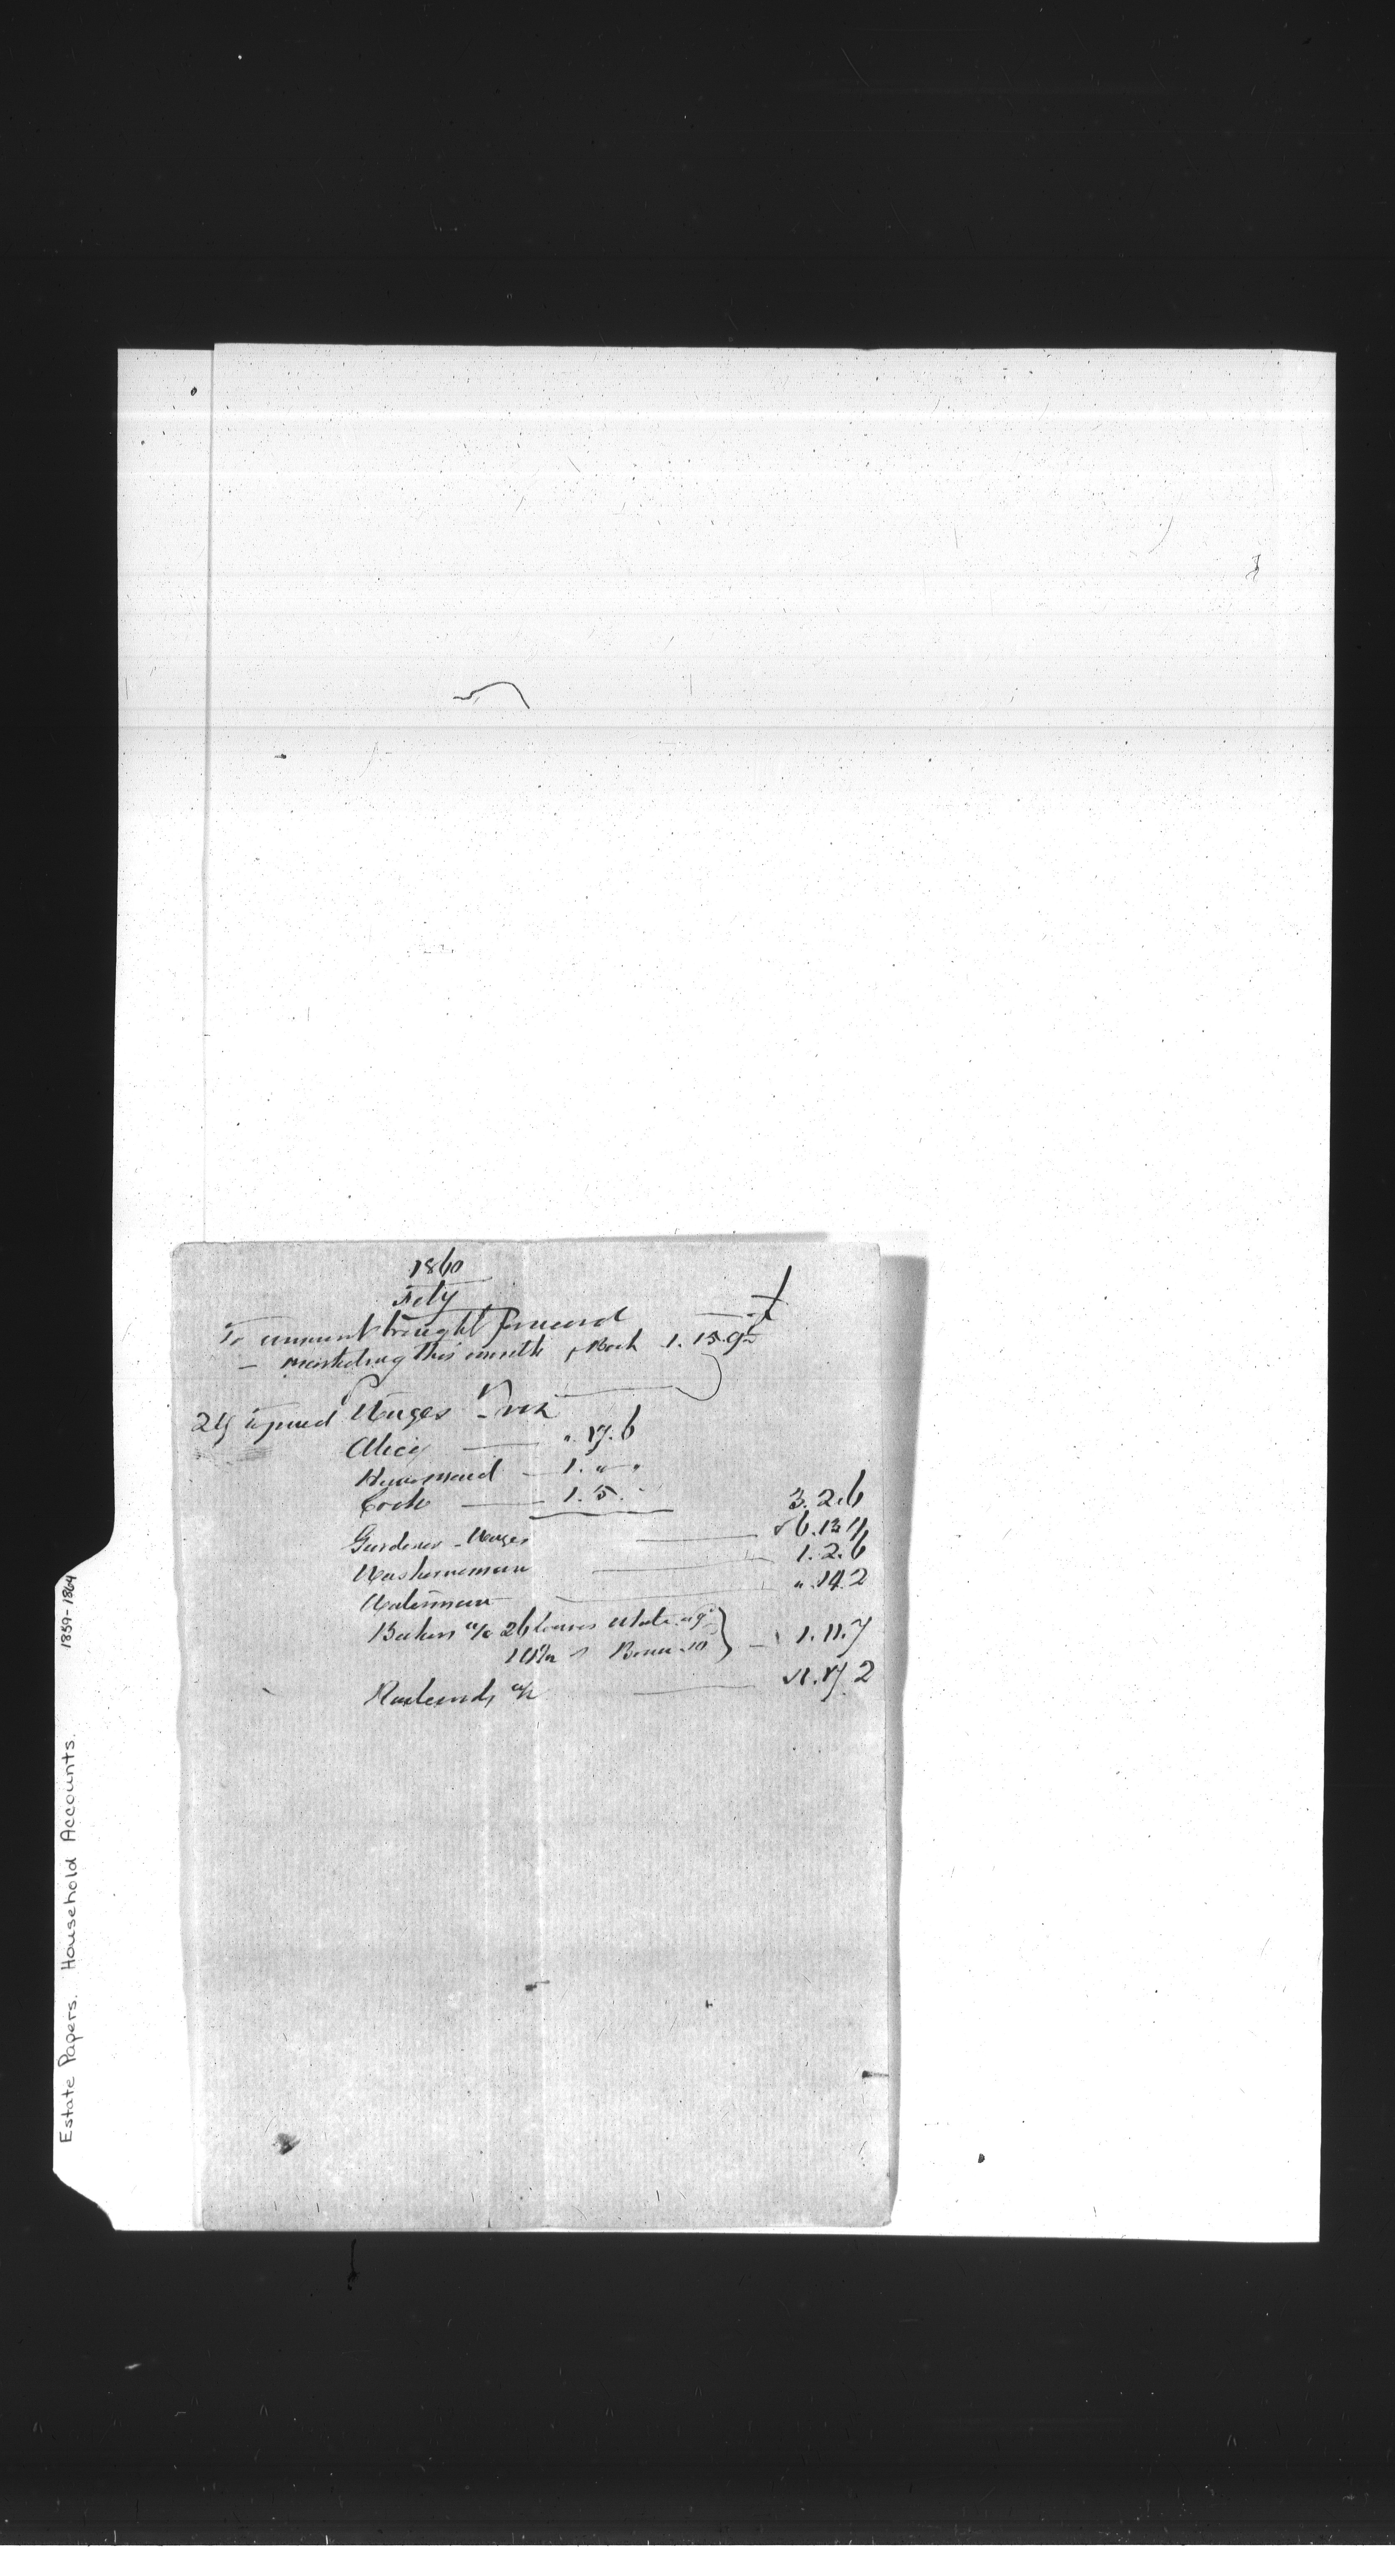 1860
Feby
To amount brought forward
— marketing this month p Book 1.15.9½
29 To paid Wages - viz
Alice — „ 17.6
Housemaid — 1. „ „
Cook — 1.5. „ 3.2.6
Gardener - Wages — 6.13.4
Washerwoman — 1.2.6
Waterman — „ 14.2
Bakers a/c 26 loaves white
Brown — 1.11.7
a/c — 1.17.2
Estate Papers. Household Accounts. 1859-1864